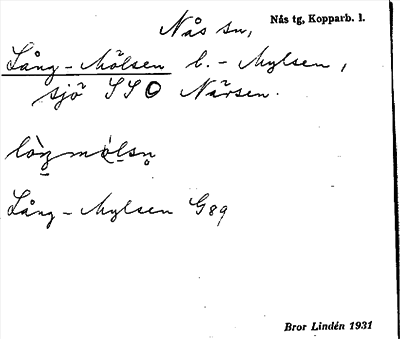 Nås sn, Nås tg, Kopparb. l.
Lång-Mölsen l. -Mylsen,
sjö SSO Närsen.
Lång-Mylsen G89
Bror Lindén 1931